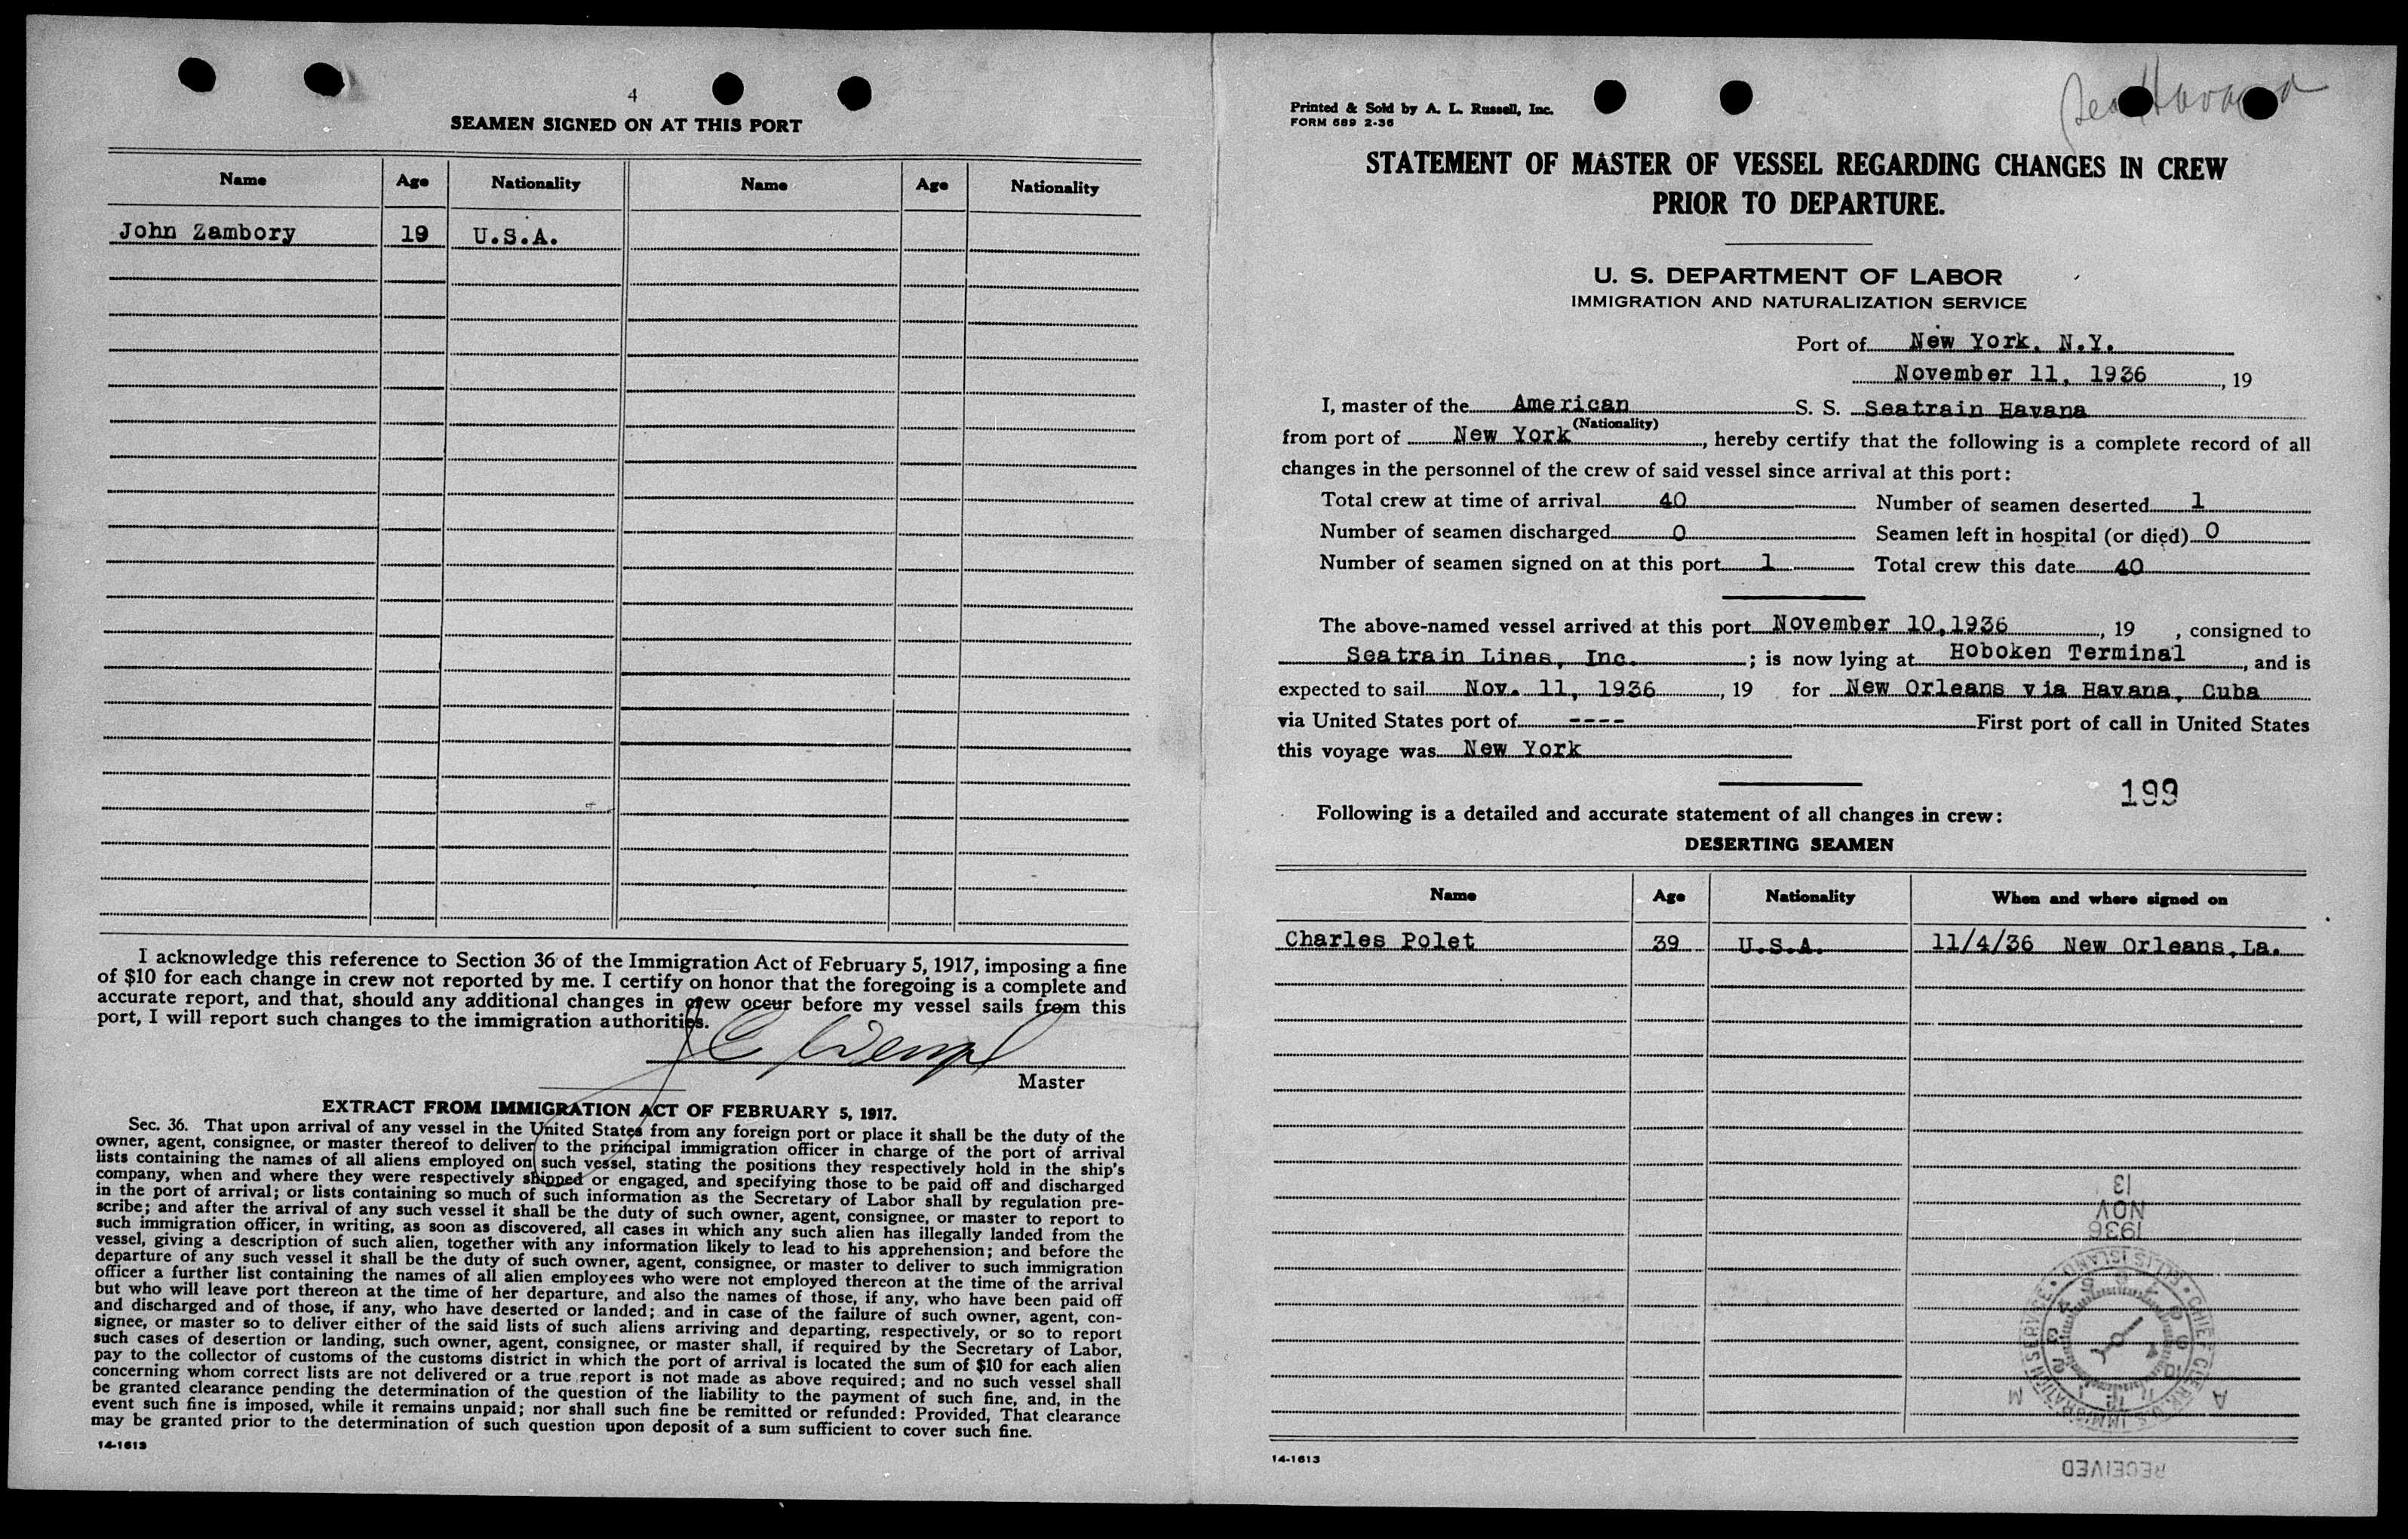 4
SEAMEN SIGNED ON AT THIS PORT
Name Age Nationality Name Age Nationality
John Zambory 19 U.S.A.
I acknowledge this reference to Section 36 of the Immigration Act of February 5, 1917, imposing a fine
of $10 for each change in crew not reported by me. I certify on honor that the foregoing is a complete and
accurate report, and that, should any additional changes in crew occur before my vessel sails from this
port, I will report such changes to the immigration authorities.
Master
EXTRACT FROM IMMIGRATION ACT OF FEBRUARY 5, 1917.
Sec. 36. That upon arrival of any vessel in the United States from any foreign port or place it shall be the duty of the
owner, agent, consignee, or master thereof to deliver to the principal immigration officer in charge of the port of arrival
lists containing the names of all aliens employed on such vessel, stating the positions they respectively hold in the ship's
company, when and where they were respectively shipped or engaged, and specifying those to be paid off and discharged
in the port of arrival; or lists containing so much of such information as the Secretary of Labor shall by regulation pre-
scribe; and after the arrival of any such vessel it shall be the duty of such owner, agent, consignee, or master to report to
such immigration officer, in writing, as soon as discovered, all cases in which any such alien has illegally landed from the
vessel, giving a description of such alien, together with any information likely to lead to his apprehension; and before the
departure of any such vessel it shall be the duty of such owner, agent, consignee, or master to deliver to such immigration
officer a further list containing the names of all alien employees who were not employed thereon at the time of the arrival
but who will leave port thereon at the time of her departure, and also the names of those, if any, who have been paid off
and discharged and of those, if any, who have deserted or landed; and in case of the failure of such owner, agent, con-
signee, or master so to deliver either of the said lists of such aliens arriving and departing, respectively, or so to report
such cases of desertion or landing, such owner, agent, consignee, or master shall, if required by the Secretary of Labor,
pay to the collector of customs of the customs district in which the port of arrival is located the sum of $10 for each alien
concerning whom correct lists are not delivered or a true report is not made as above required; and no such vessel shall
be granted clearance pending the determination of the question of the liability to the payment of such fine, and, in the
event such fine is imposed, while it remains unpaid; nor shall such fine be remitted or refunded: Provided, That clearance
may be granted prior to the determination of such question upon deposit of a sum sufficient to cover such fine.
14-1613
Sea Havana
Printed & Sold by A. L. Russell, Inc.
FORM 689 2-36
STATEMENT OF MASTER OF VESSEL REGARDING CHANGES IN CREW
PRIOR TO DEPARTURE.
U. S. DEPARTMENT OF LABOR
IMMIGRATION AND NATURALIZATION SERVICE
Port of New York, N.Y.
November 11, 1936, 19
I, master of the American S. S. Seatrain Havana
(Nationality)
from port of New York, hereby certify that the following is a complete record of all
changes in the personnel of the crew of said vessel since arrival at this port:
Total crew at time of arrival 40 Number of seamen deserted 1
Number of seamen discharged 0 Seamen left in hospital (or died) 0
Number of seamen signed on at this port 1 Total crew this date 40
The above-named vessel arrived at this port November 10, 1936, 19 , consigned to
Seatrain Lines, Inc.; is now lying at Hoboken Terminal, and is
expected to sail Nov. 11, 1936, 19 for New Orleans via Havana, Cuba
via United States port of ---- First port of call in United States
this voyage was New York
199
Following is a detailed and accurate statement of all changes in crew:
DESERTING SEAMEN
Name Age Nationality When and where signed on
Charles Polet 39 U.S.A. 11/4/36 New Orleans, La.
13
NOV
1936
CHIEF CLERK, U.S. IMMIGRATION SERVICE • ELLIS ISLAND •
A M
14-1613
RECEIVED